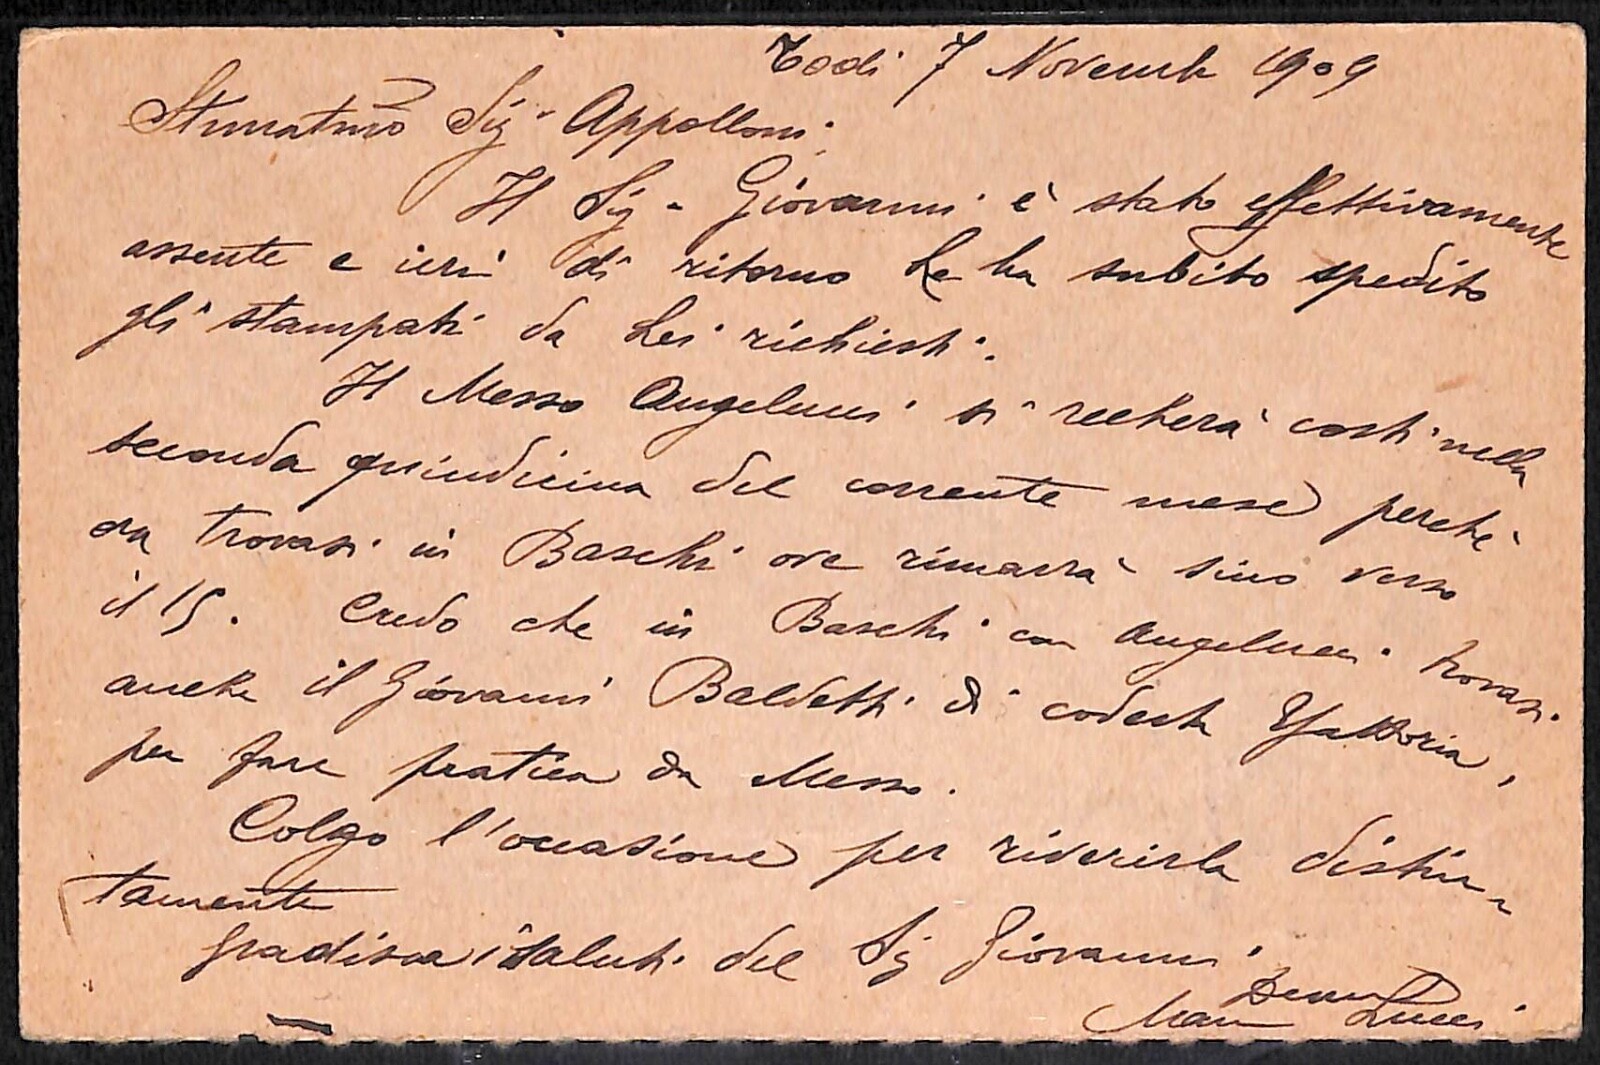 Todi 7 Novembre 1909
Stimatmo Sig. Appolloni
Il Sig. Giovanni è stato effettivamente
assente e ieri di ritorno Le ha subito spedito
gli stampati da Lei richiesti.
Il Messo Angelucci si recherà costì nella
seconda quindicina del corrente mese perchè
ora trovasi in Baschi ove rimarrà sino verso
il 15. Credo che in Baschi con Angelucci trovasi
anche il Giovanni Baldetti di codesta Fattoria,
per fare pratica da Messo.
Colgo l'occasione per riverirla distin-
tamente
Gradisca i saluti del Sig Giovanni
Lucci